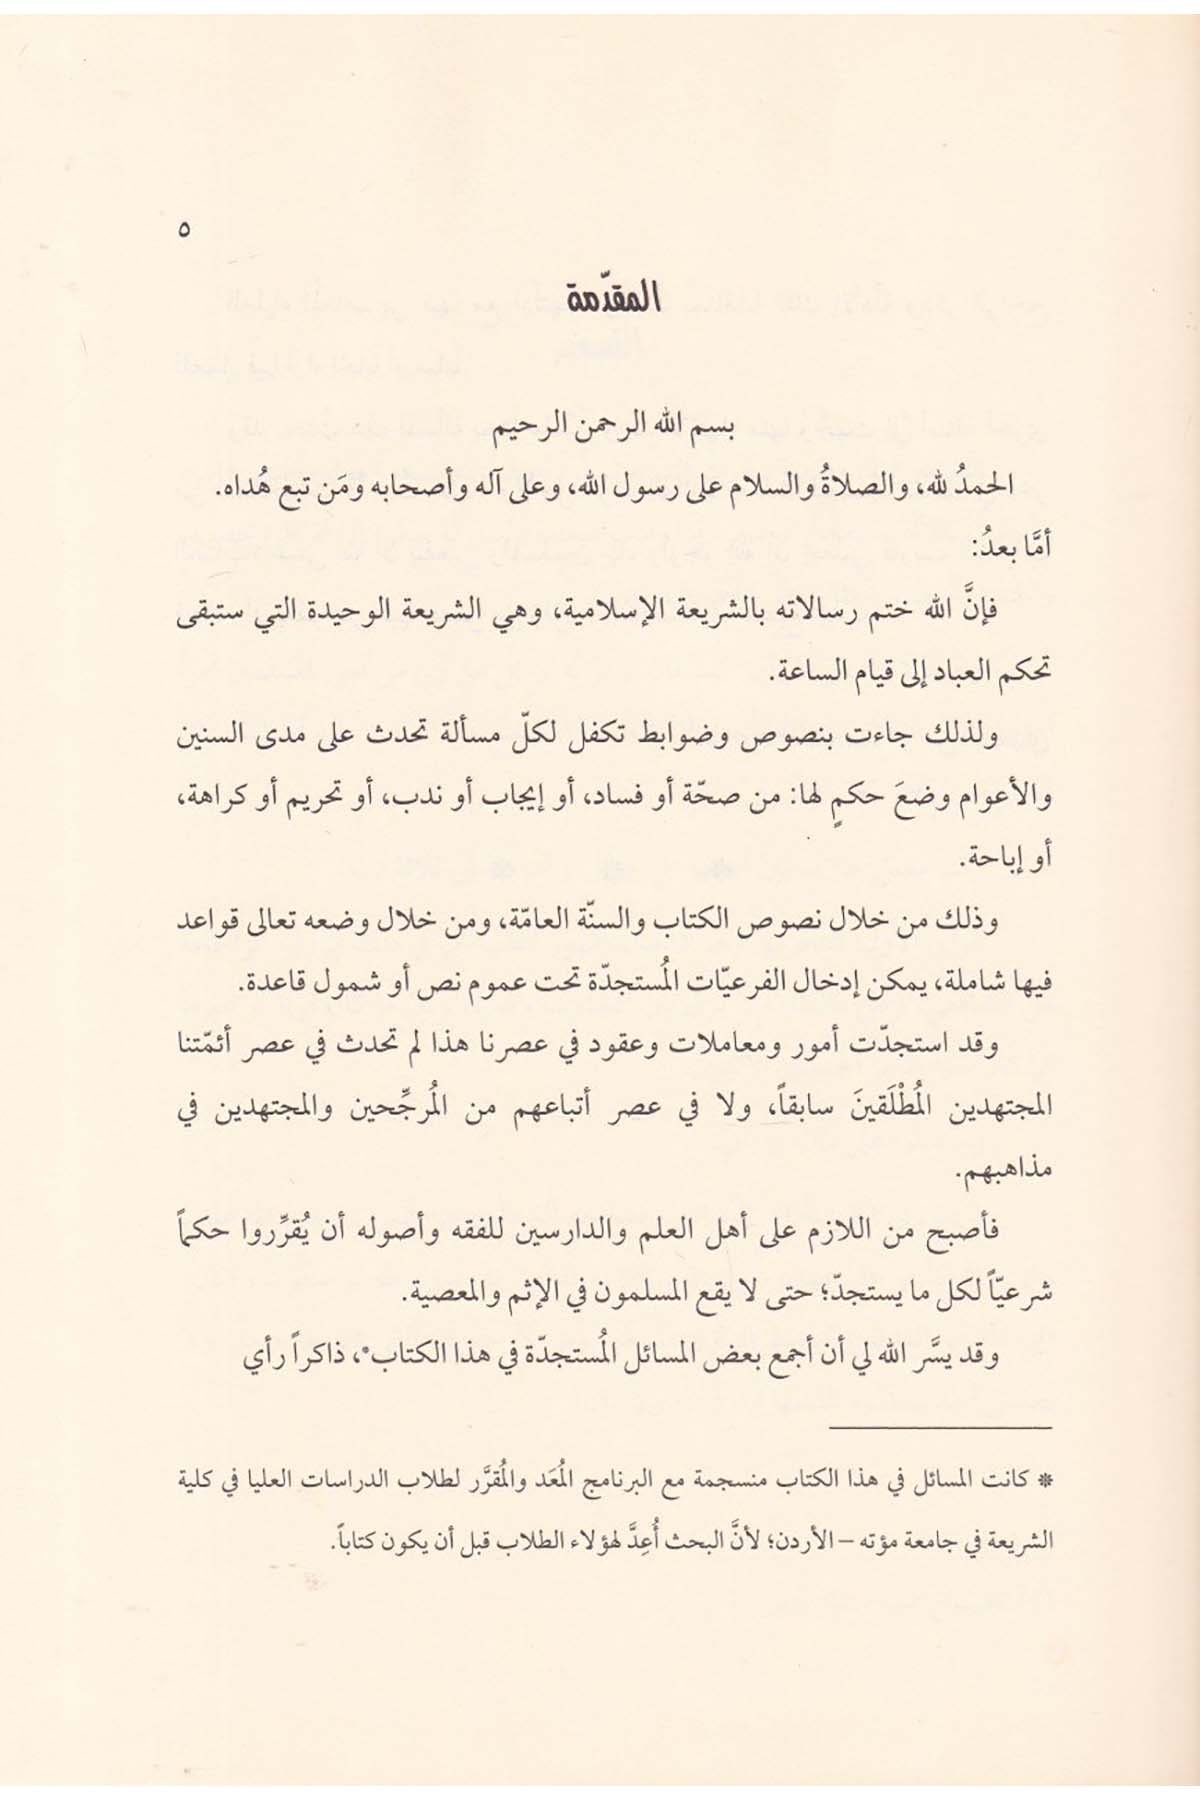 ٥
المقدّمة
بسم الله الرحمن الرحيم
الحمدُ لله، والصلاةُ والسلام على رسول الله، وعلى آله وأصحابه ومَن تبع هُداه.
أمَّا بعدُ:
فإنَّ الله ختم رسالاته بالشريعة الإسلامية، وهي الشريعة الوحيدة التي ستبقى
تحكم العباد إلى قيام الساعة.
ولذلك جاءت بنصوص وضوابط تكفل لكلّ مسألة تحدث على مدى السنين
والأعوام وضعَ حكمٍ لها: من صحّة أو فساد، أو إيجاب أو ندب، أو تحريم أو كراهة،
أو إباحة.
وذلك من خلال نصوص الكتاب والسنّة العامّة، ومن خلال وضعه تعالى قواعد
فيها شاملة، يمكن إدخال الفرعيّات المُستجدّة تحت عموم نص أو شمول قاعدة.
وقد استجدّت أمور ومعاملات وعقود في عصرنا هذا لم تحدث في عصر أئمّتنا
المجتهدين المُطْلَقينَ سابقاً، ولا في عصر أتباعهم من المُرجِّحين والمجتهدين في
مذاهبهم.
فأصبح من اللازم على أهل العلم والدارسين للفقه وأصوله أن يُقرِّروا حكماً
شرعيّاً لكل ما يستجدّ؛ حتى لا يقع المسلمون في الإثم والمعصية.
وقد يسَّر الله لي أن أجمع بعض المسائل المُستجدّة في هذا الكتاب*، ذاكراً رأي
* كانت المسائل في هذا الكتاب منسجمة مع البرنامج المُعَد والمُقرَّر لطلاب الدراسات العليا في كلية
الشريعة في جامعة مؤته – الأردن؛ لأنَّ البحث أُعِدَّ لهؤلاء الطلاب قبل أن يكون كتاباً.